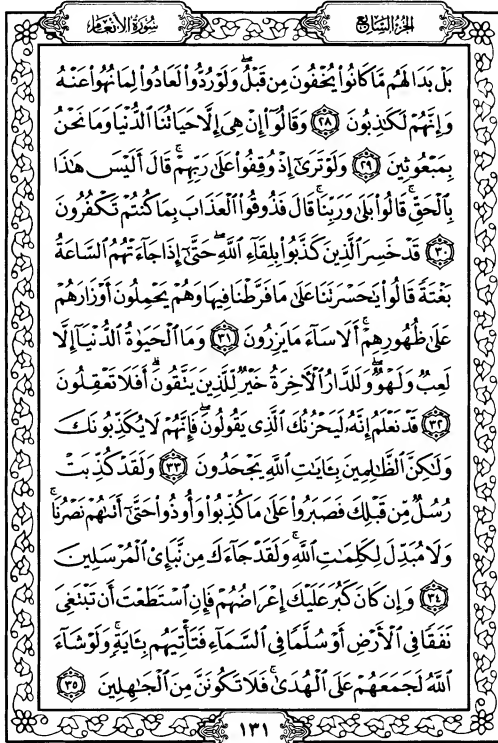 الجزء السابع سورة الأنعام
بَلۡ بَدَا لَهُم مَّا كَانُواْ يُخۡفُونَ مِن قَبۡلُۖ وَلَوۡ رُدُّواْ لَعَادُواْ لِمَا نُهُواْ عَنۡهُ
وَإِنَّهُمۡ لَكَٰذِبُونَ ٢٨ وَقَالُوٓاْ إِنۡ هِيَ إِلَّا حَيَاتُنَا ٱلدُّنۡيَا وَمَا نَحۡنُ
بِمَبۡعُوثِينَ ٢٩ وَلَوۡ تَرَىٰٓ إِذۡ وُقِفُواْ عَلَىٰ رَبِّهِمۡۚ قَالَ أَلَيۡسَ هَٰذَا
بِٱلۡحَقِّۚ قَالُواْ بَلَىٰ وَرَبِّنَاۚ قَالَ فَذُوقُواْ ٱلۡعَذَابَ بِمَا كُنتُمۡ تَكۡفُرُونَ
٣٠ قَدۡ خَسِرَ ٱلَّذِينَ كَذَّبُواْ بِلِقَآءِ ٱللَّهِۖ حَتَّىٰٓ إِذَا جَآءَتۡهُمُ ٱلسَّاعَةُ
بَغۡتَةٗ قَالُواْ يَٰحَسۡرَتَنَا عَلَىٰ مَا فَرَّطۡنَا فِيهَا وَهُمۡ يَحۡمِلُونَ أَوۡزَارَهُمۡ
عَلَىٰ ظُهُورِهِمۡۚ أَلَا سَآءَ مَا يَزِرُونَ ٣١ وَمَا ٱلۡحَيَوٰةُ ٱلدُّنۡيَآ إِلَّا
لَعِبٞ وَلَهۡوٞۖ وَلَلدَّارُ ٱلۡأٓخِرَةُ خَيۡرٞ لِّلَّذِينَ يَتَّقُونَۚ أَفَلَا تَعۡقِلُونَ
٣٢ قَدۡ نَعۡلَمُ إِنَّهُۥ لَيَحۡزُنُكَ ٱلَّذِي يَقُولُونَۖ فَإِنَّهُمۡ لَا يُكَذِّبُونَكَ
وَلَٰكِنَّ ٱلظَّٰلِمِينَ بِـَٔايَٰتِ ٱللَّهِ يَجۡحَدُونَ ٣٣ وَلَقَدۡ كُذِّبَتۡ
رُسُلٞ مِّن قَبۡلِكَ فَصَبَرُواْ عَلَىٰ مَا كُذِّبُواْ وَأُوذُواْ حَتَّىٰٓ أَتَىٰهُمۡ نَصۡرُنَاۚ
وَلَا مُبَدِّلَ لِكَلِمَٰتِ ٱللَّهِۚ وَلَقَدۡ جَآءَكَ مِن نَّبَإِيْ ٱلۡمُرۡسَلِينَ
٣٤ وَإِن كَانَ كَبُرَ عَلَيۡكَ إِعۡرَاضُهُمۡ فَإِنِ ٱسۡتَطَعۡتَ أَن تَبۡتَغِيَ
نَفَقٗا فِي ٱلۡأَرۡضِ أَوۡ سُلَّمٗا فِي ٱلسَّمَآءِ فَتَأۡتِيَهُم بِـَٔايَةٖۚ وَلَوۡ شَآءَ
ٱللَّهُ لَجَمَعَهُمۡ عَلَى ٱلۡهُدَىٰۚ فَلَا تَكُونَنَّ مِنَ ٱلۡجَٰهِلِينَ ٣٥
١٣١